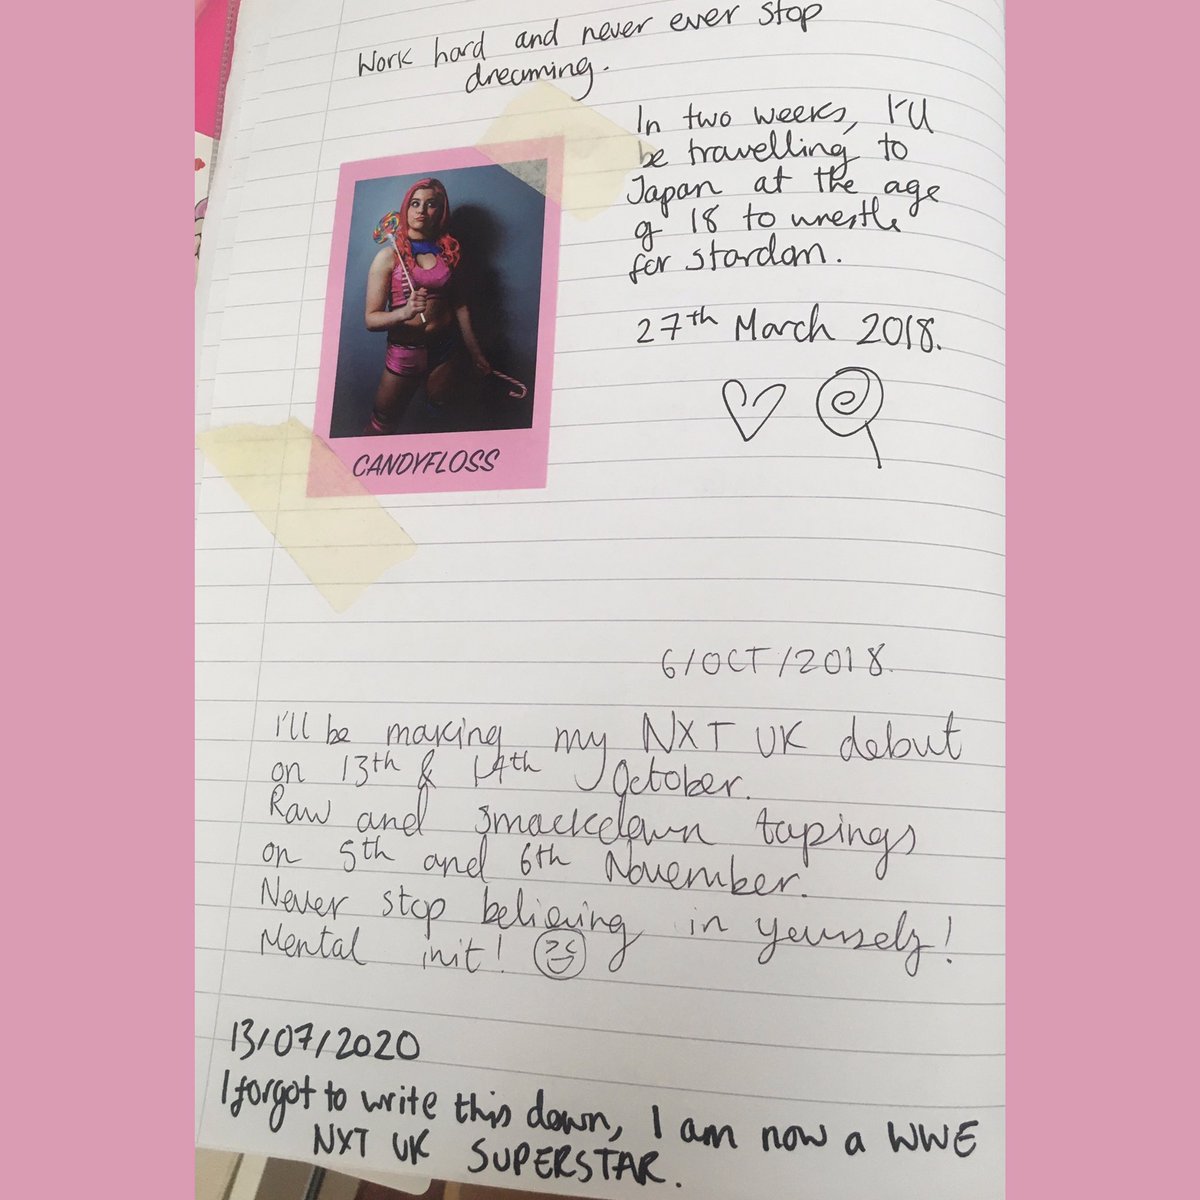 Work hard and never ever stop
dreaming.
In two weeks, I'll
be travelling to
Japan at the age
of 18 to wrestle
for stardom.
27th March 2018.
CANDYFLOSS
6/OCT/2018.
I'll be making my NXT UK debut
on 13th & 14th October.
Raw and Smackdown tapings
on 5th and 6th November.
Never stop believing in yourself!
Mental init!
13/07/2020
I forgot to write this down, I am now a WWE
NXT UK SUPERSTAR.